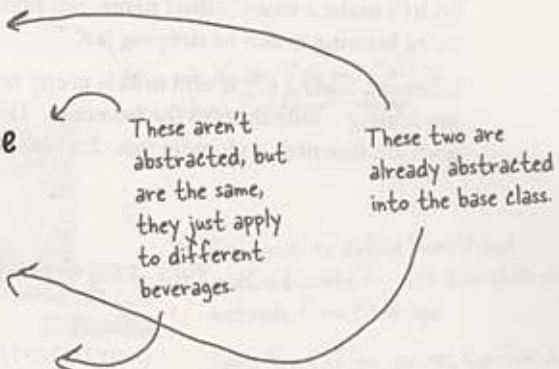 These aren't
abstracted, but
are the same,
they just apply
to different
beverages.
These two are
already abstracted
into the base class.